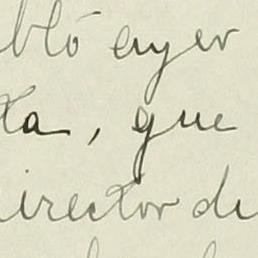 bló ayer
ta, que
irector de